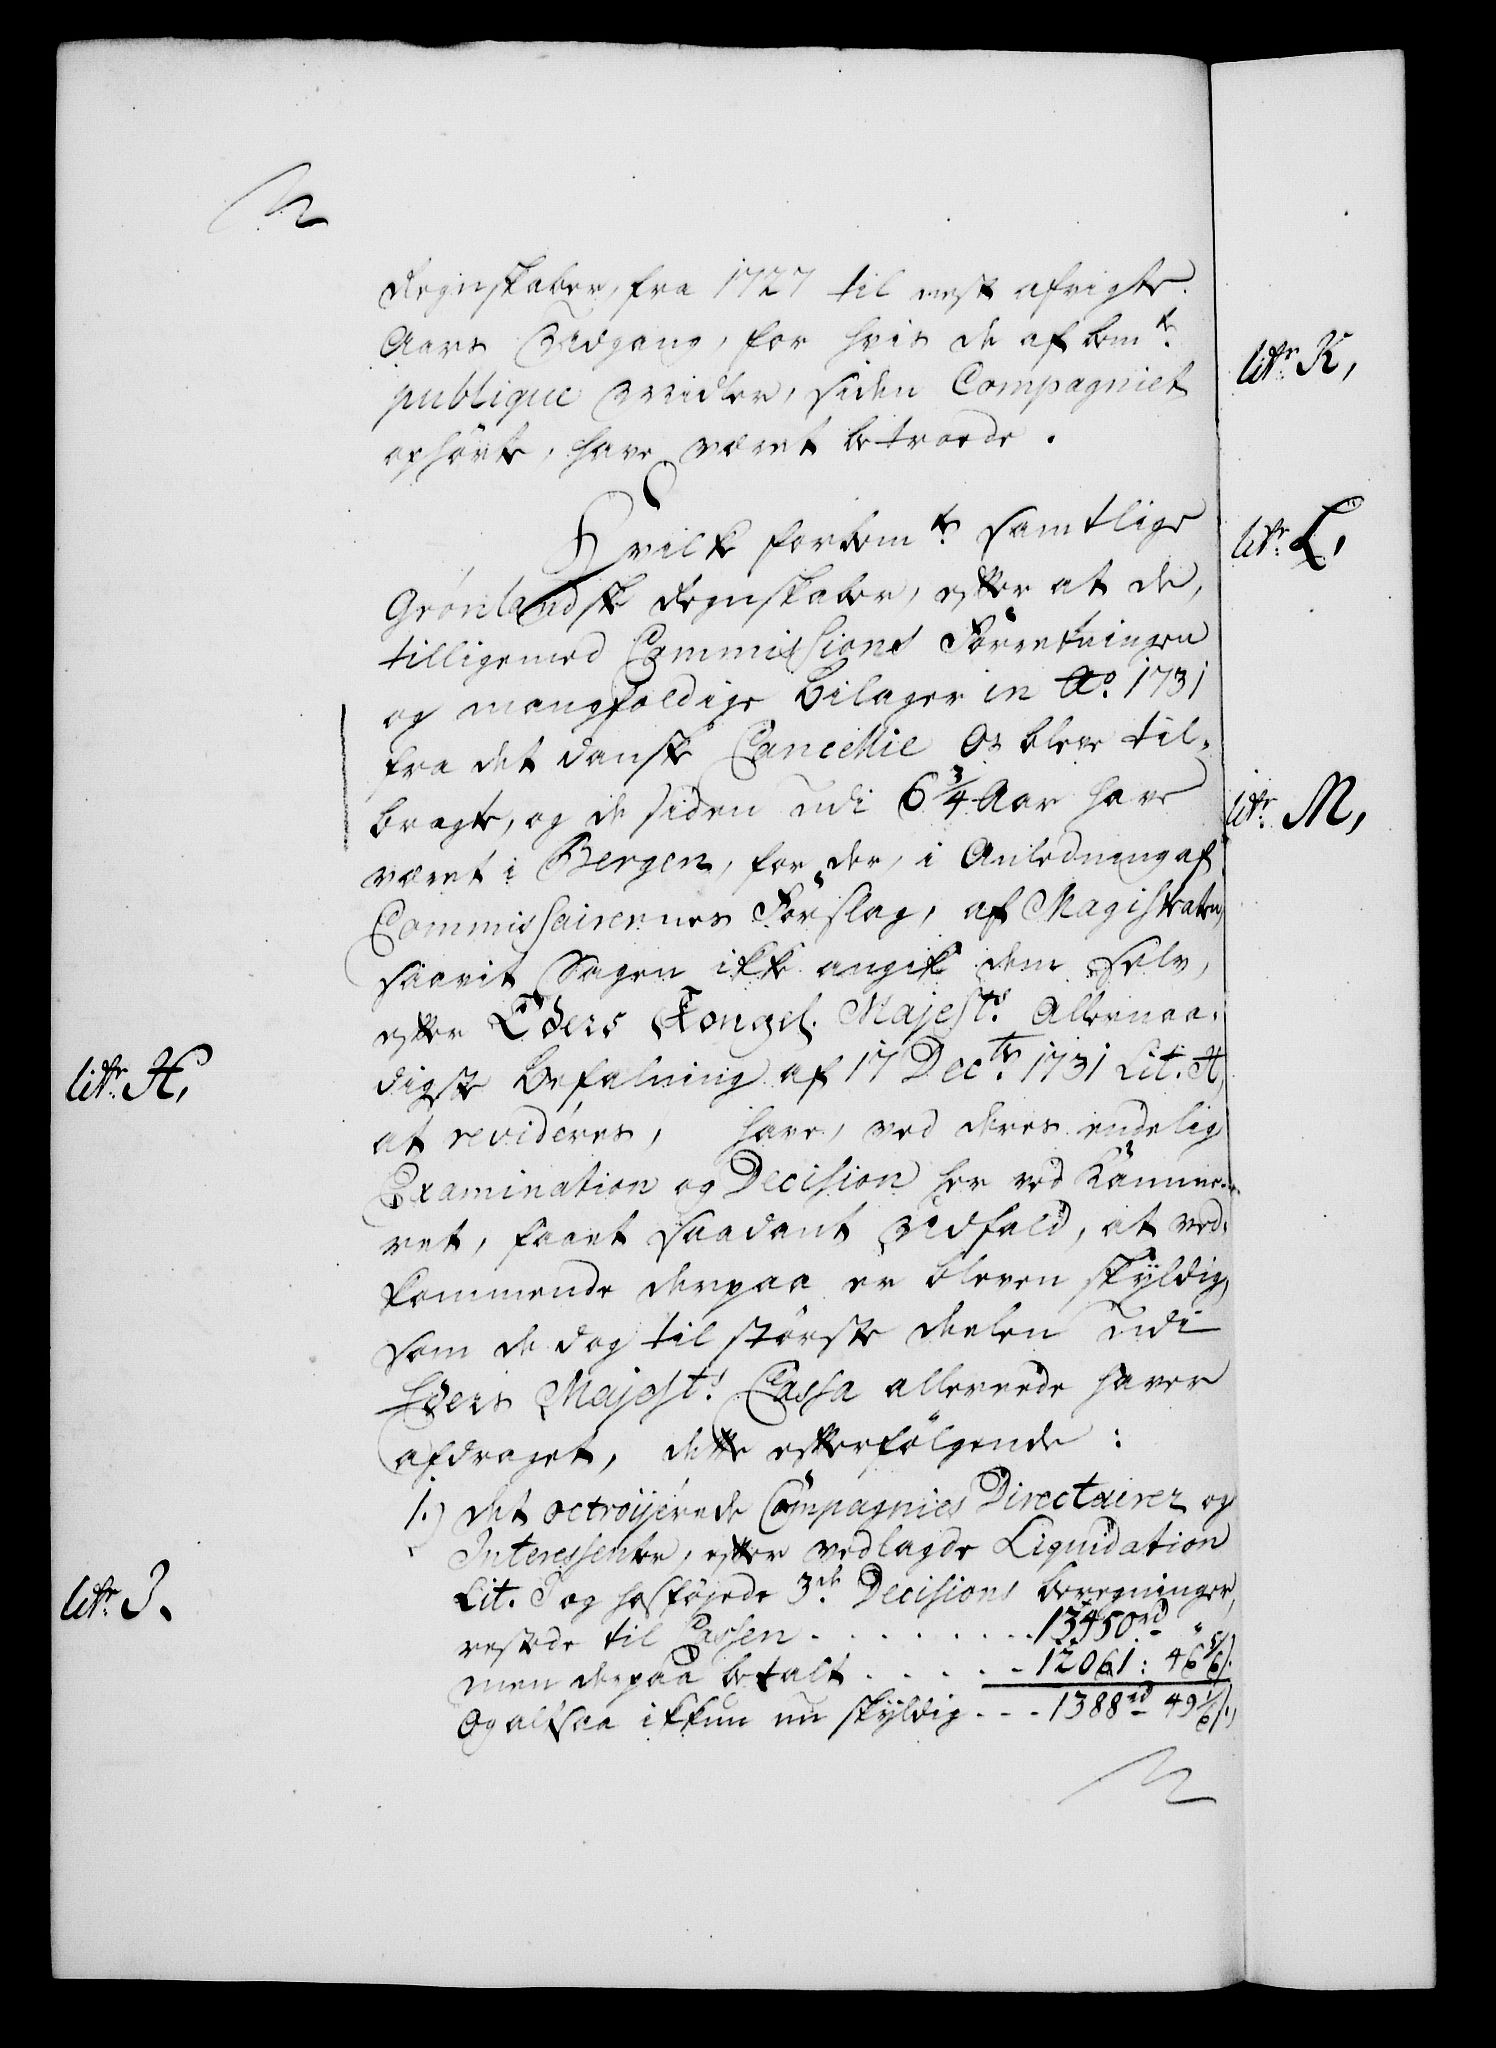 Regnskaber, fra 1727 til nest afvigte
Aars Udgang, for hvis de af bem.te
publique Midler, siden Compagniet
ophörte, have været betroede.
Hvilke forbem.te samtlige
Grönlandske Regnskaber, efter at de,
tilligemed Commissions Forretningen
og mangfoldige bilager in Ao. 1731
fra det danske Cancellie Os bleve til-
bragte, og de siden udi 6 3/4 Aar have
været i Bergen, for der, i Anledning af
Commissairernes Forslag, af Magistraten,
saavit Sagen ikke angik dem selv,
efter Eders Kongel. Majest.s Allernaa-
digste befalning af 17 Dec.br 1731 Lit. H,
at revideres, have, ved deres endelig
Examination og Decision her ved Kammer-
ret, faaet saadant Udfald, at ved-
kommende derpaa er bleven skyldig,
som de dog til störste deelen udi
Eders Majest.s Cassa allereede haver
afdraget, dette efterfölgende:
1.) det octroijerede Compagnies Directeurer og
Interessenter, efter vedlagde Liquidation
Lit. J og hosföjede 3.de Decisions beregninger,
restede til Cassen . . . . . . . . 13450 rd "
men derpaa betalt . . . . . 12061: 46 5/6 ß.
Og altsaa ikkun nu skyldig - - - 1388 rd 49 1/6 ß.,
litr. H,
litr. J.
litr. K,
litr. L,
litr. M,